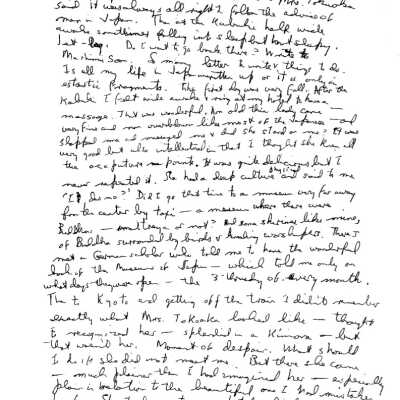 Mrs. Takaoka
said it was always all right to follow the advice of
man in Japan. Then at the Kabuki half wide
awake sometimes falling into sleep but not sleepy.
Jet-lag. D. I want to go back there - Write to
Mariam Soon. So many letters to write & things to do.
Is all my life in Japan written up or it is only in
ecstatic fragments. The first day was very full. After the
Kabuki I felt wide awake & in my hotel I had a
massage. That was wonderful. An old thin lady came -
very fine and no overblown like most of the Japanese - and
slapped me and massaged me & did she stand on me? It was
very good but also intellectual that I thought she knew all
the accupuncture points. It was quite delicious but I
never repeated it. She had a deep culture and said to me
"I do so?" Did I go that time to a museum very far away
from the center by taxi - a museum where there were
Buddhas - and some shrines like mine,
of Buddha surrounded by birds & kneeling worshipers. There I
met a German scholar who told me to have the wonderful
book of the Museums of Japan - which told me only on
what days they were open - the 3rd Thursday of every month.
Then to Kyoto and getting off the train I didn't remember
exactly what Mrs. Takaoka looked like - thought
I recognized her - splendid in a Kimono - but
that wasn't her. Moment of despair. What should
I do if she did not meet me. But there she came
- much plainer than I had imagined her - especially
plain in relation to the beautiful one I had mistaken